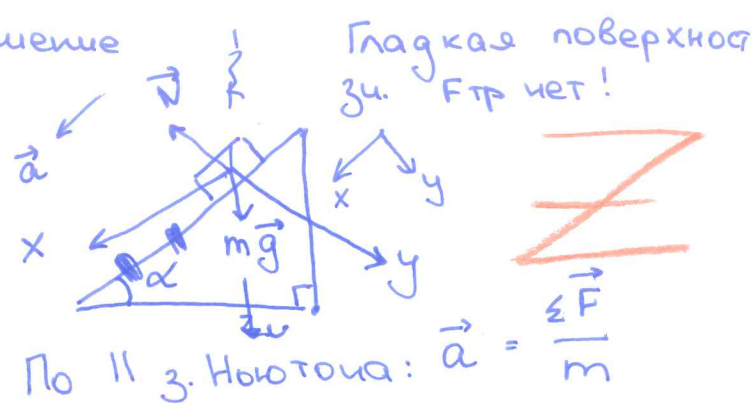 шение Гладкая поверхност
N зн. Fтр нет!
a
x y
X mg y
α
По II з. Ньютона: a = ΣF / m